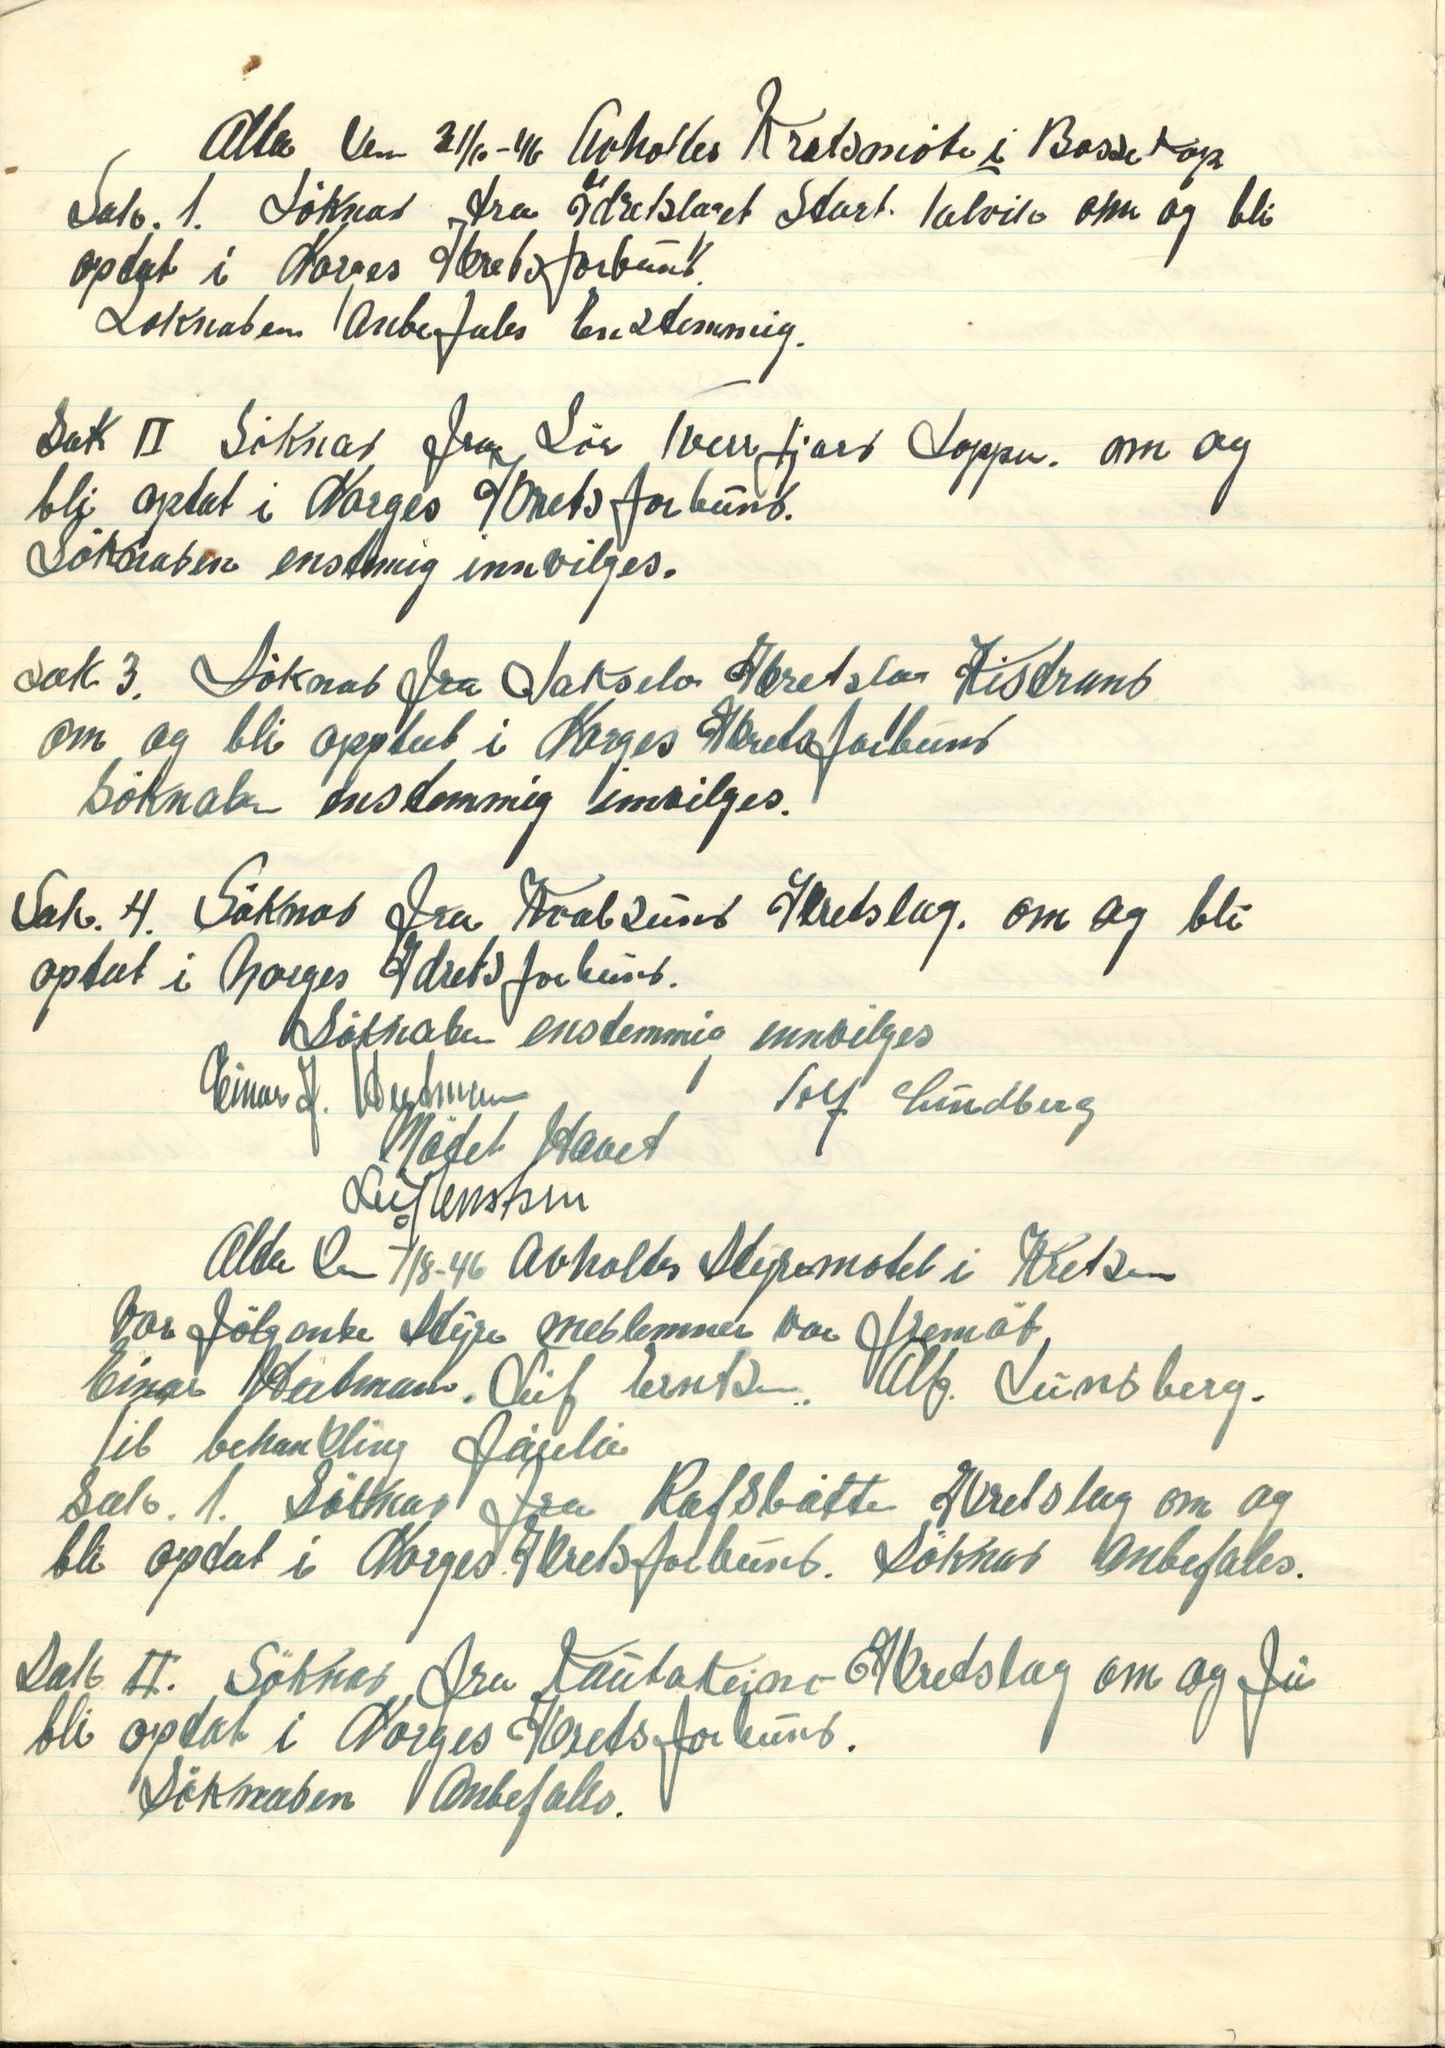 Alta den -46 Avholtes Kretsmöte i Bossekop
Sak. 1. Söknad fra Idretslaget Start. Talvik om og bli
optat i Norges Idretsforbund.
Söknaden Anbefales Enstemmig.
Sak II Söknad fra Sör Tverrfjord Loppa. om og
bli optat i Norges Idretsforbund.
Söknaden enstmig innvilges.
Sak 3. Söknad fra Idretslag Kistrand
om og bli opptat i Norges Idretsforbund
Söknaden enstemmig innvilges.
Sak. 4. Söknad fra Kvalsund Idretslag. om og bli
optat i Norges Idretsforbund.
Söknaden enstemmig innvilges
Einar J. Lundberg
Leif
Alta den 7/8-46 Avholdes Styremötet i Kretsen
Vor fölgende Styre medlemmer var fremöt.
Einar Leif Alf. Lundberg.
Til behandling forelå
Sak. 1. Söknad fra Rafsbotten Idretslag om og
bli optat i Norges Idretsforbund. Söknad Anbefales.
Sak II. Söknad fra Kautokeino Idretslag om og få
bli optat i Norges Idretsforbund.
Söknaden Anbefales.